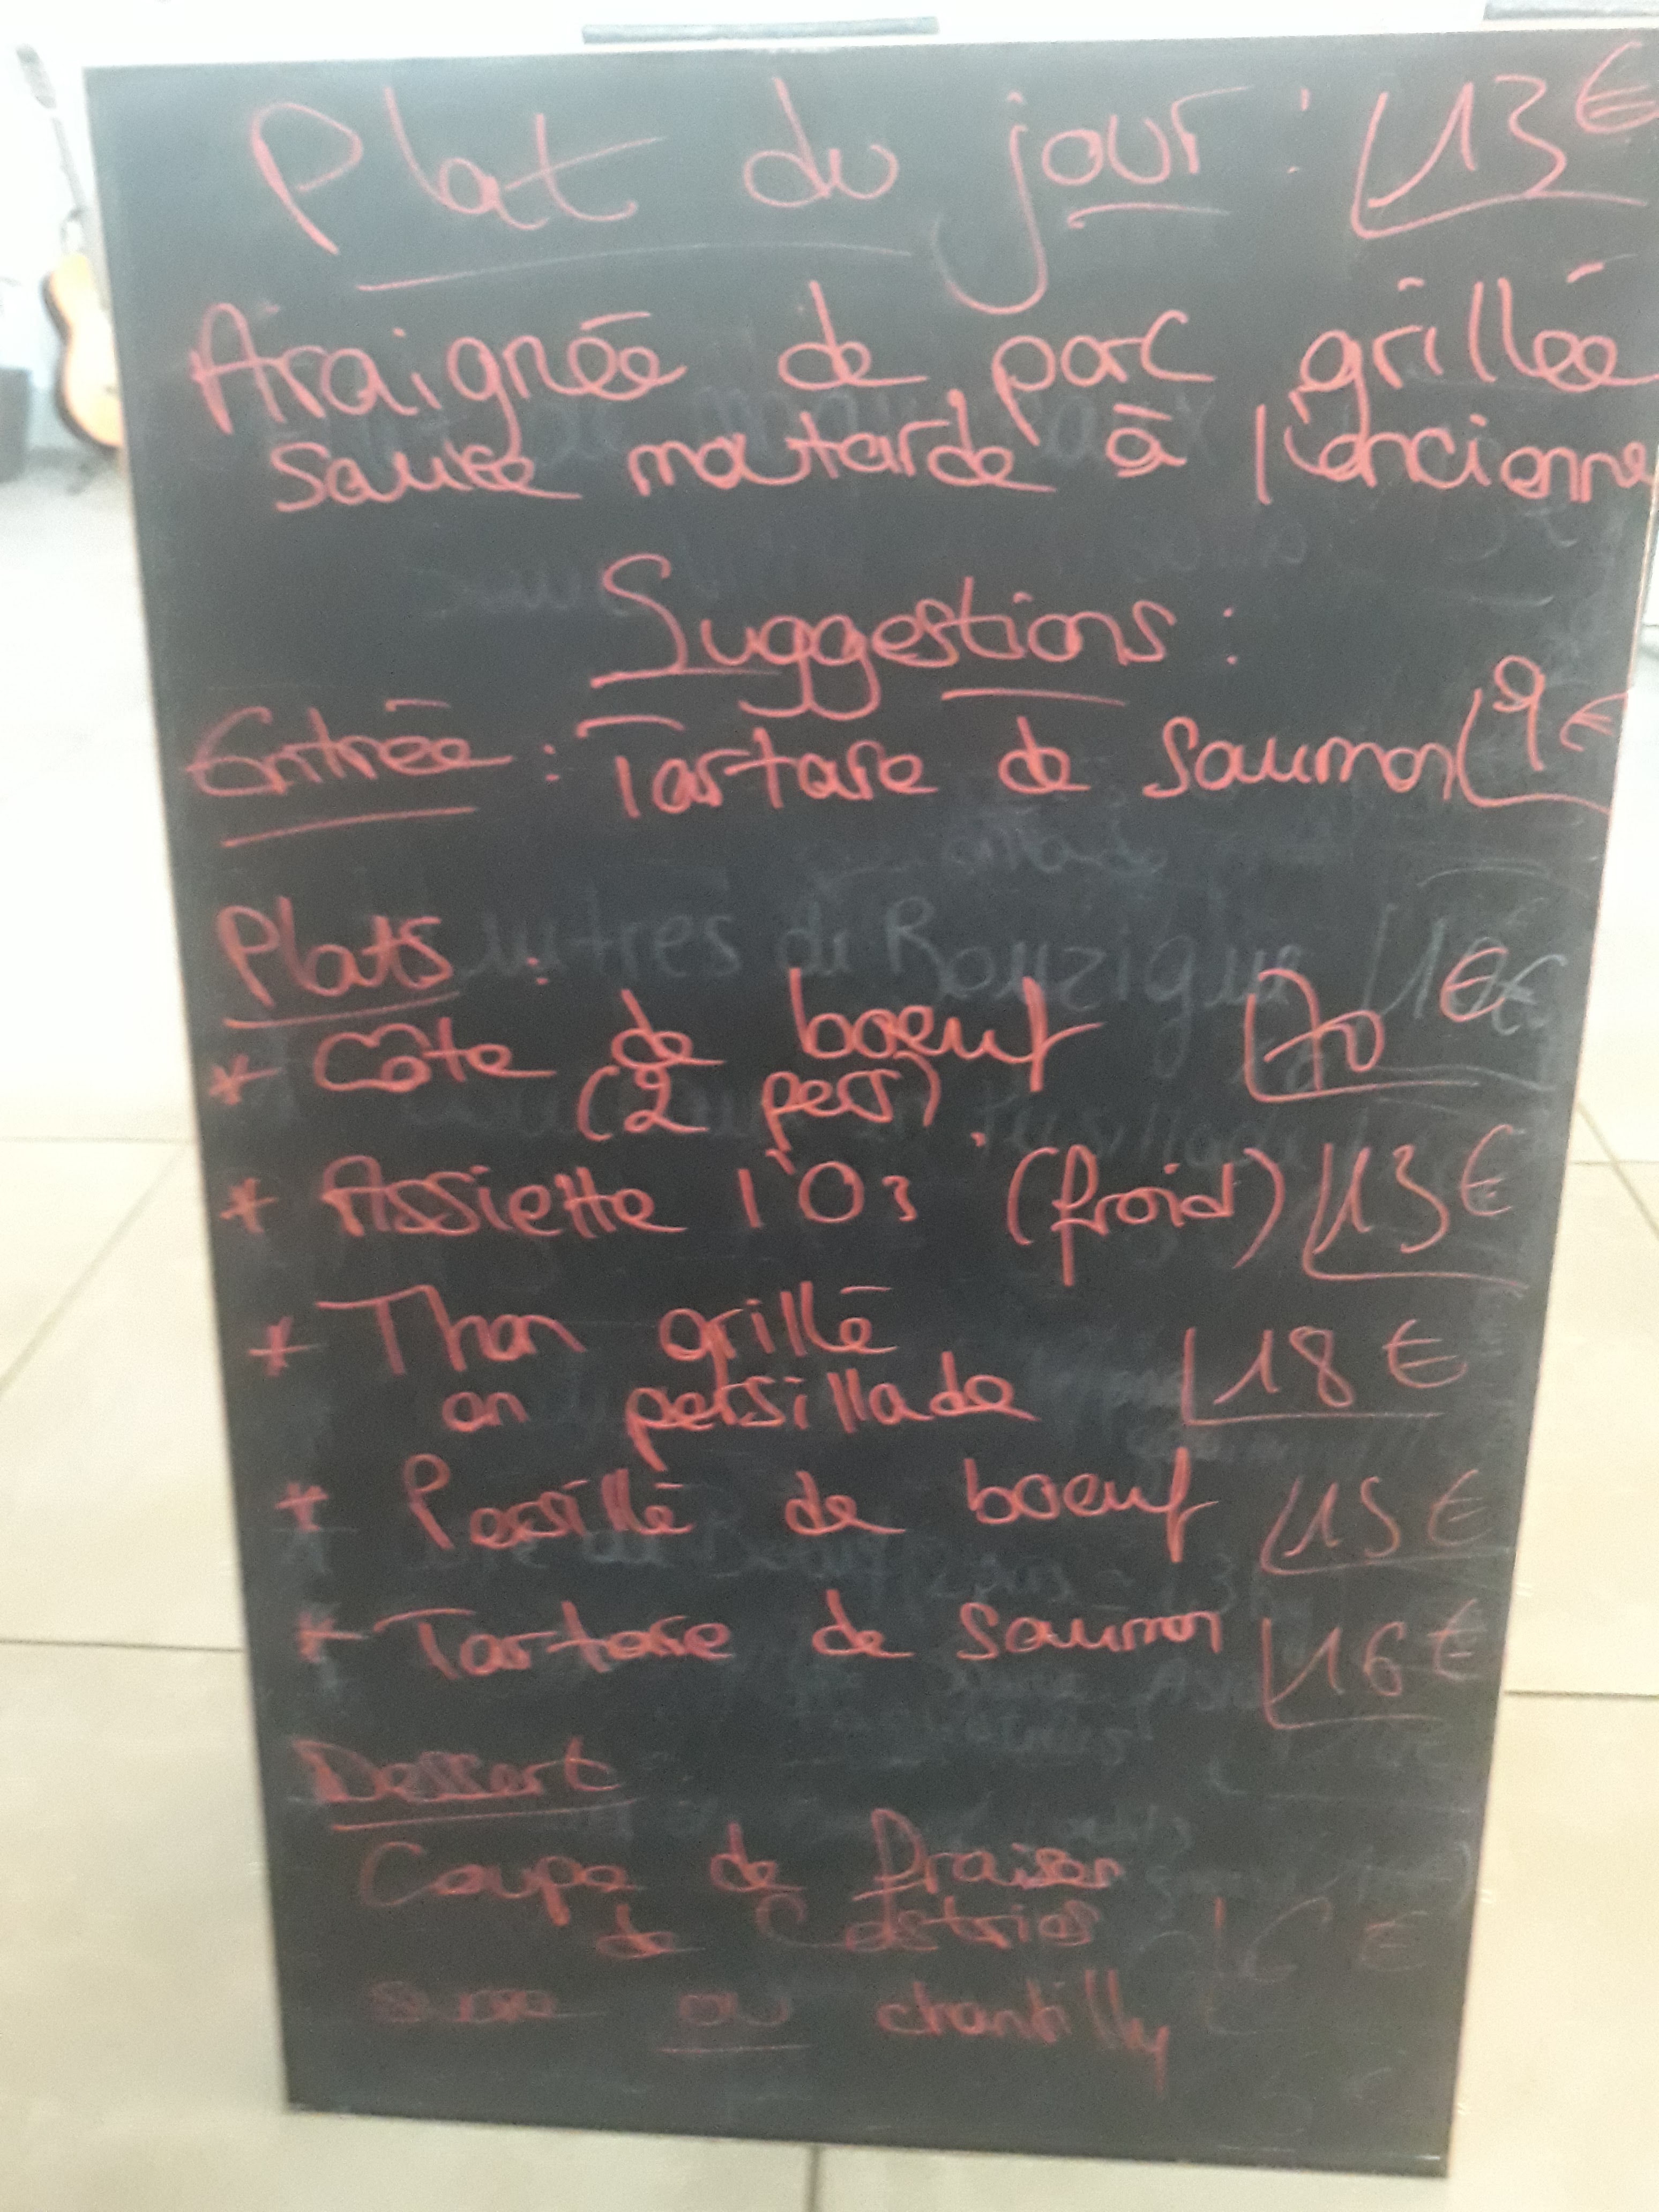 Plat du jour : 13€
Araignée de porc grillée
sauce moutarde à l'ancienne
Suggestions :
Entrée : Tartare de saumon 9€
Plats :
* Côte de boeuf 70 €
(2 pers)
* Assiette l'O3 (froid) 13€
* Thon grillé
en persillade 18€
* Persillé de boeuf 15€
* Tartare de saumon 16€
Dessert
Coupe de fraises
de Castries 6€
sucre ou chantilly